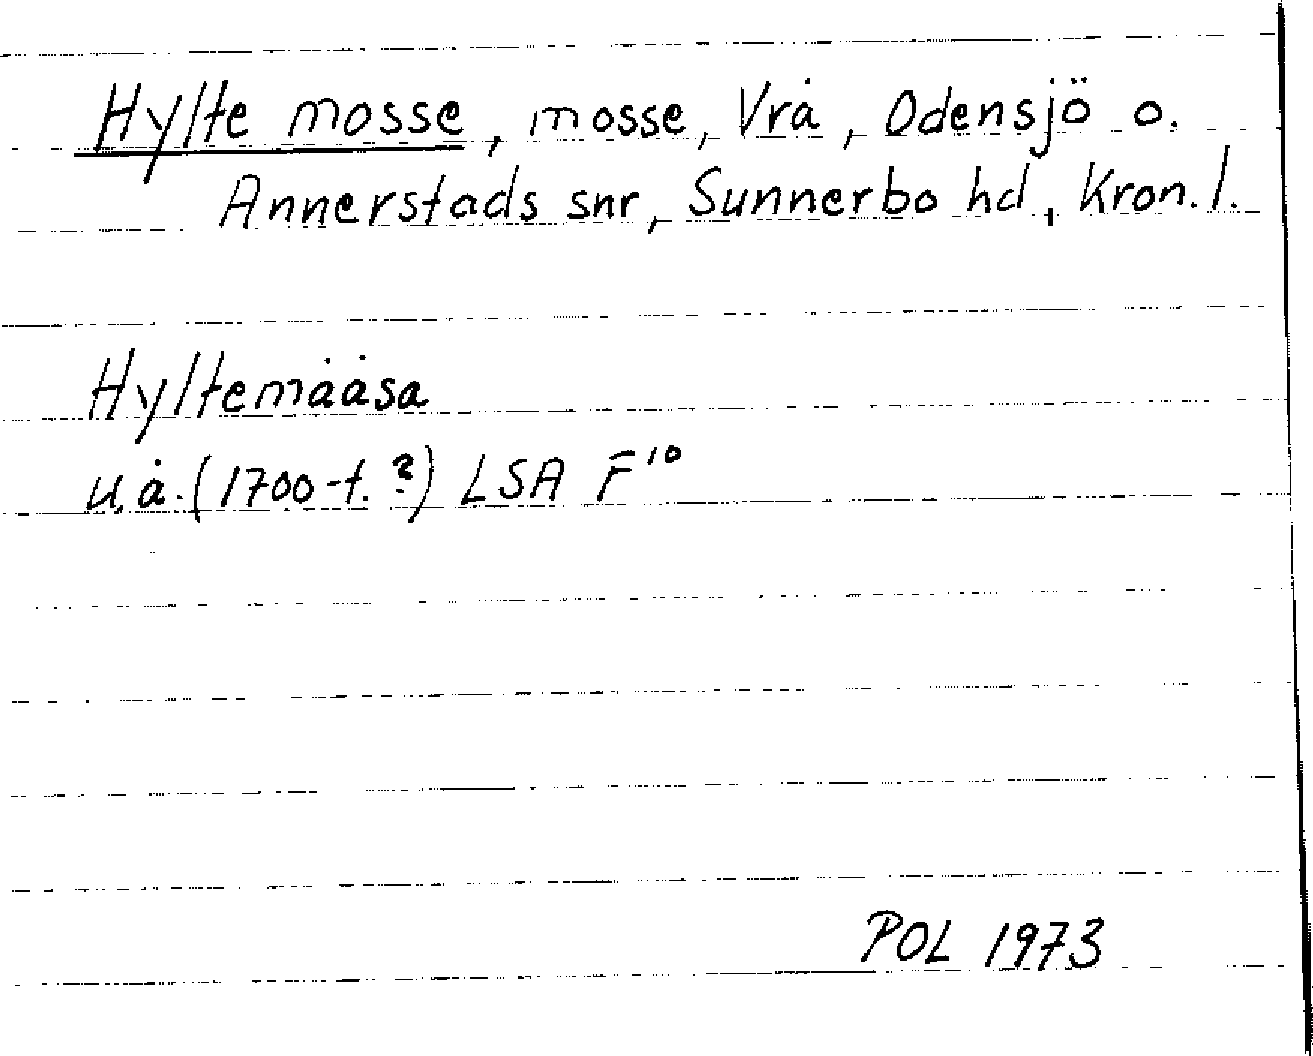 Hylte mosse, mosse, Vrå, Odensjö o.
Annerstads snr, Sunnerbo hd, Kron. l.
Hyltemååsa
u.å. (1700-t. ?) LSA F¹⁰
POL 1973